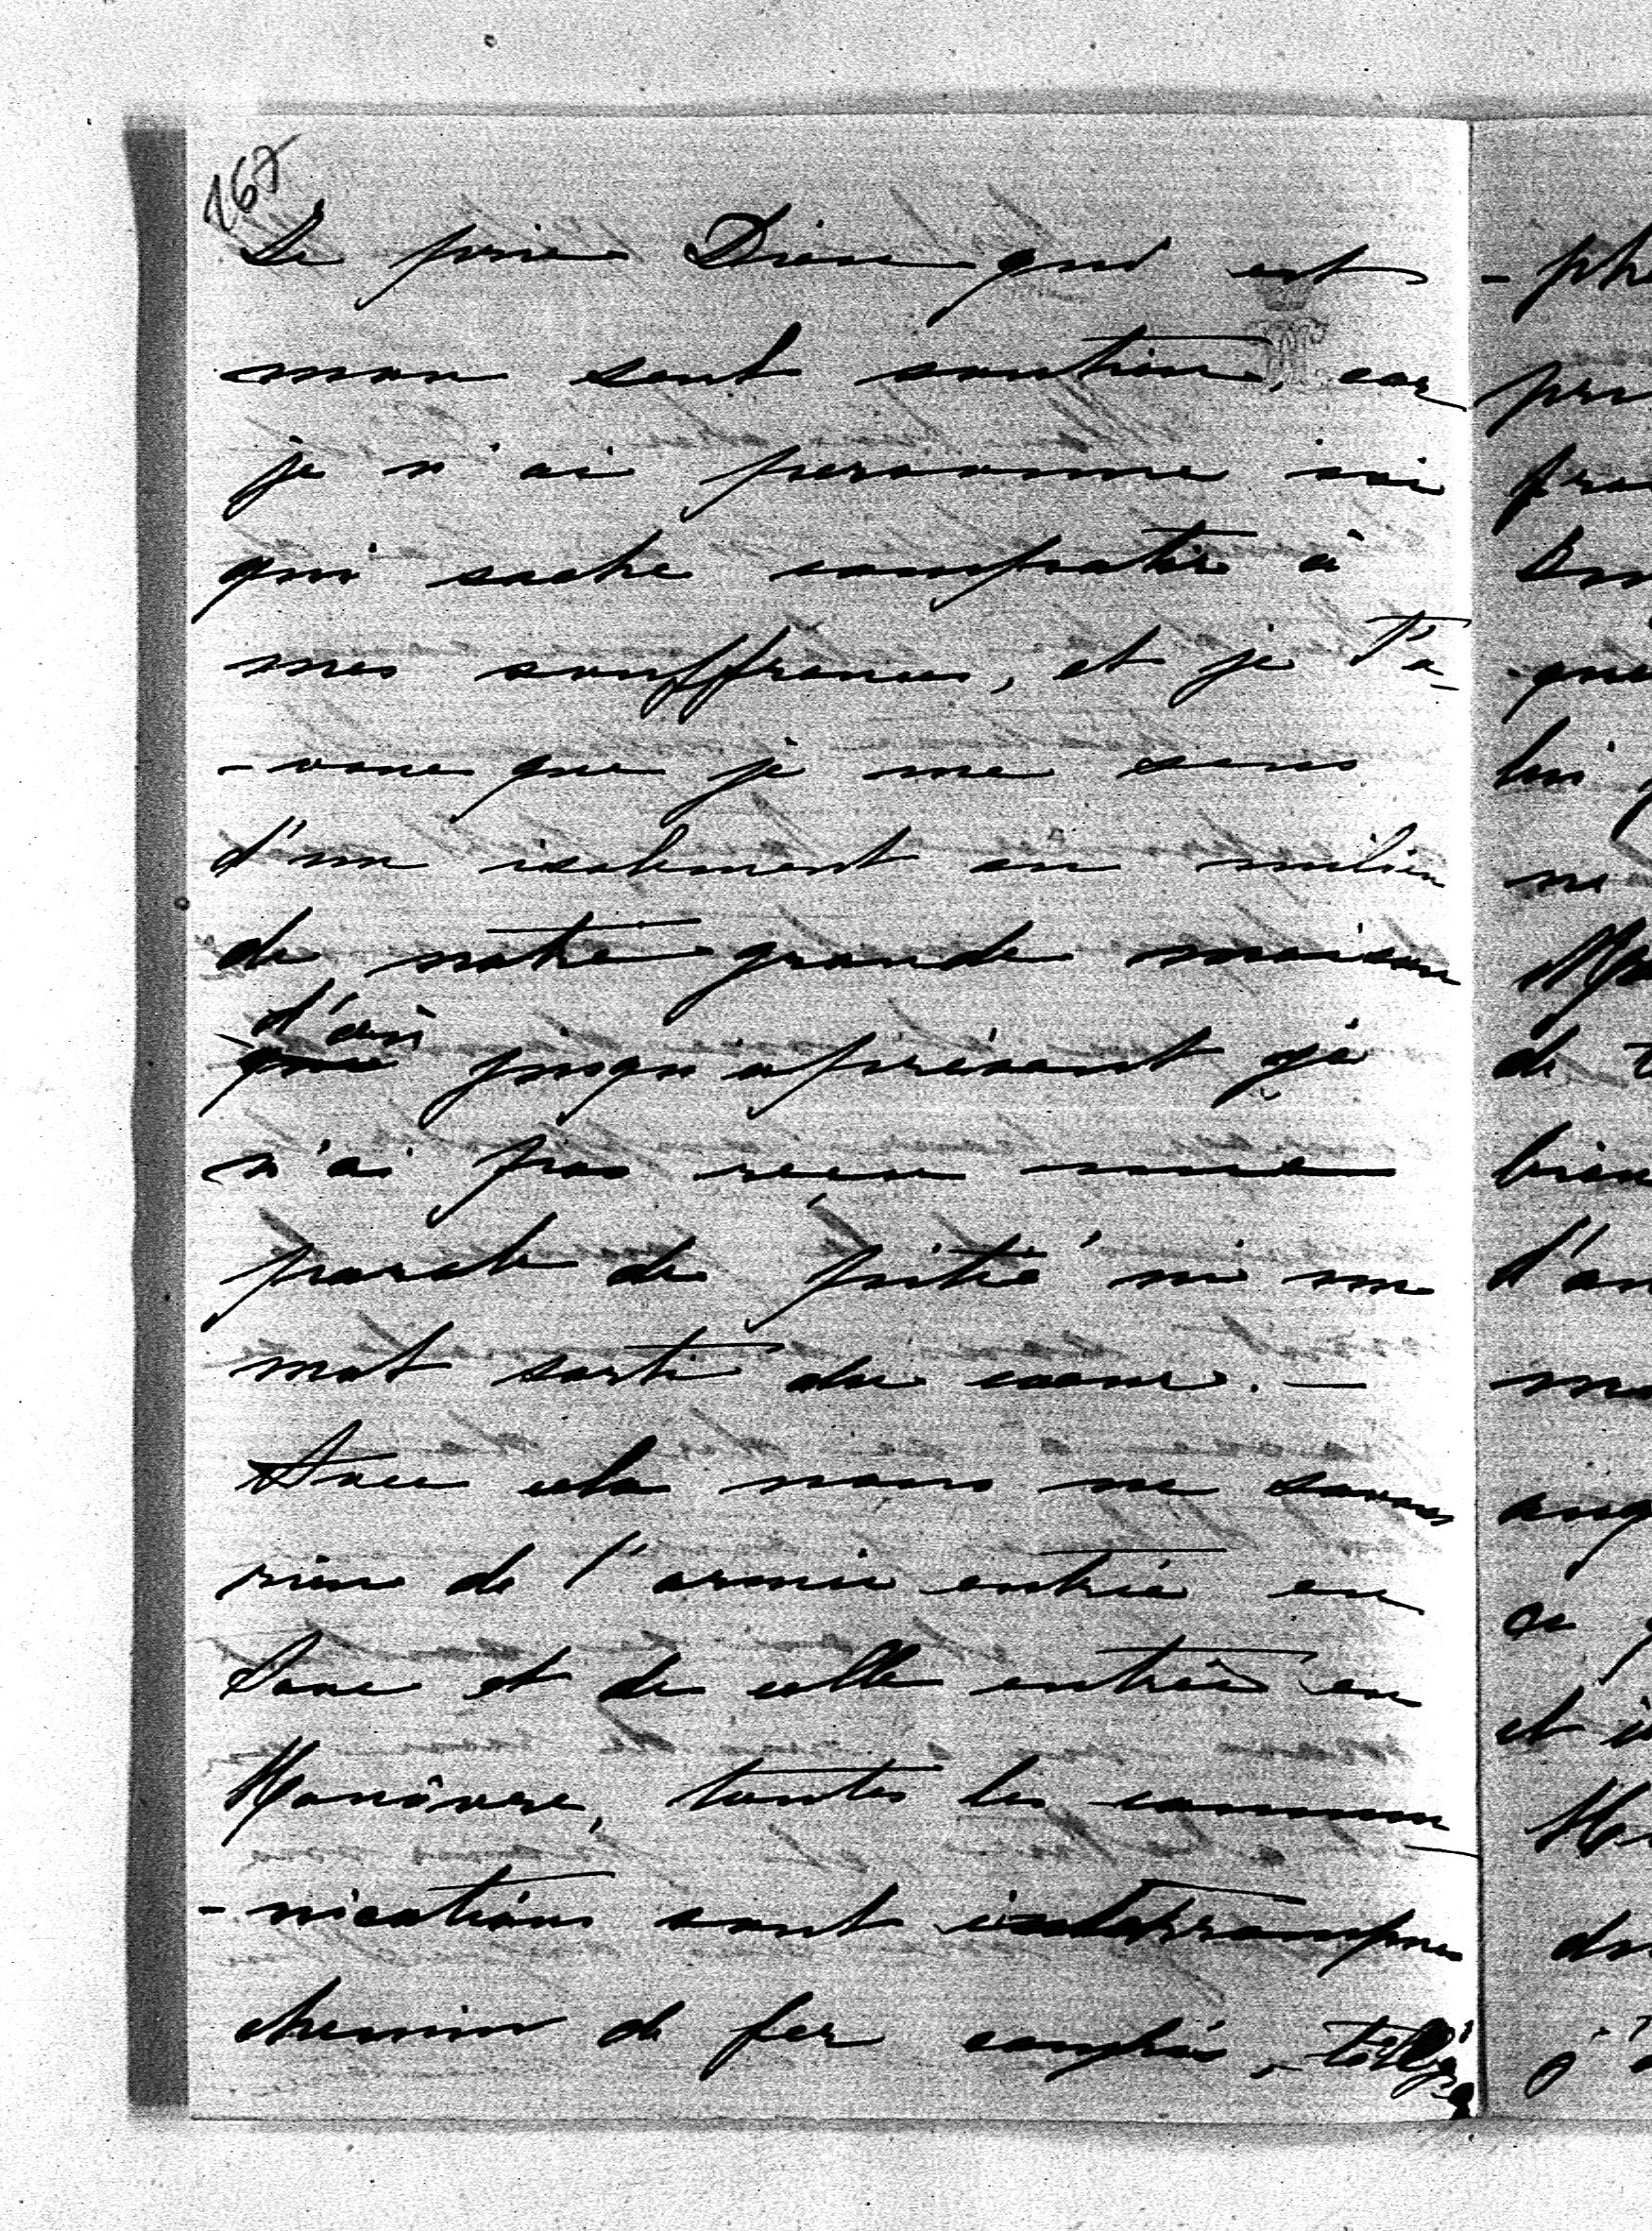 267
Je prie Dieu qui est
mon seul soutien, car
je n'ai personne ici
qui sache compatir à
mes souffrances, et je t'a
-voue que je me sens
d'un isolement au milieu
de notre grande maison
d'où
que jusqu'aprésent je
n'ai pas recu une
parole de pitié ni un
mot sorti du coeur. —
Avec cela nous ne savons
rien de l'armée entrée en
Saxe et de celle entrée en
Hanôvre, toutes les commu
-nications sont interrompues
chemin de fer coupés, télégr